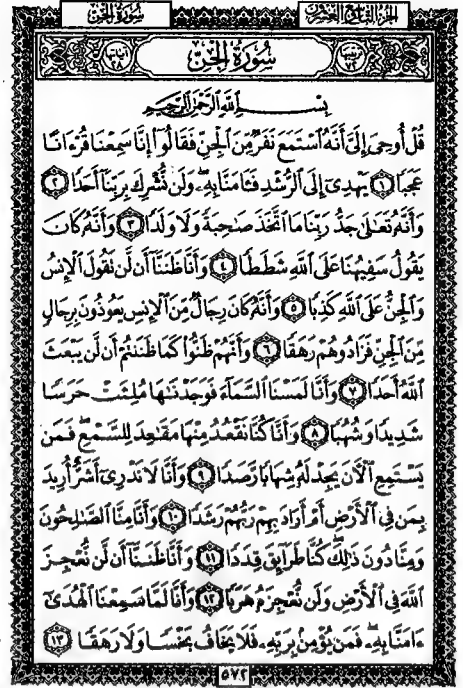 سُورَةُ الجِنِّ الجُزْءُ التَّاسِعُ وَالعِشْرُونَ
ترتيبها ٧٢ سُورَةُ الجِنِّ آياتها ٢٨
بِسْمِ ٱللَّهِ ٱلرَّحْمَٰنِ ٱلرَّحِيمِ
قُلْ أُوحِيَ إِلَيَّ أَنَّهُ ٱسْتَمَعَ نَفَرٌ مِّنَ ٱلْجِنِّ فَقَالُوٓا۟ إِنَّا سَمِعْنَا قُرْءَانًا
عَجَبًا ١ يَهْدِىٓ إِلَى ٱلرُّشْدِ فَـَٔامَنَّا بِهِۦ ۖ وَلَن نُّشْرِكَ بِرَبِّنَآ أَحَدًا ٢
وَأَنَّهُۥ تَعَٰلَىٰ جَدُّ رَبِّنَا مَا ٱتَّخَذَ صَٰحِبَةً وَلَا وَلَدًا ٣ وَأَنَّهُۥ كَانَ
يَقُولُ سَفِيهُنَا عَلَى ٱللَّهِ شَطَطًا ٤ وَأَنَّا ظَنَنَّآ أَن لَّن تَقُولَ ٱلْإِنسُ
وَٱلْجِنُّ عَلَى ٱللَّهِ كَذِبًا ٥ وَأَنَّهُۥ كَانَ رِجَالٌ مِّنَ ٱلْإِنسِ يَعُوذُونَ بِرِجَالٍ
مِّنَ ٱلْجِنِّ فَزَادُوهُمْ رَهَقًا ٦ وَأَنَّهُمْ ظَنُّوا۟ كَمَا ظَنَنتُمْ أَن لَّن يَبْعَثَ
ٱللَّهُ أَحَدًا ٧ وَأَنَّا لَمَسْنَا ٱلسَّمَآءَ فَوَجَدْنَٰهَا مُلِئَتْ حَرَسًا
شَدِيدًا وَشُهُبًا ٨ وَأَنَّا كُنَّا نَقْعُدُ مِنْهَا مَقَٰعِدَ لِلسَّمْعِ ۖ فَمَن
يَسْتَمِعِ ٱلْـَٔانَ يَجِدْ لَهُۥ شِهَابًا رَّصَدًا ٩ وَأَنَّا لَا نَدْرِىٓ أَشَرٌّ أُرِيدَ
بِمَن فِى ٱلْأَرْضِ أَمْ أَرَادَ بِهِمْ رَبُّهُمْ رَشَدًا ١٠ وَأَنَّا مِنَّا ٱلصَّٰلِحُونَ
وَمِنَّا دُونَ ذَٰلِكَ ۖ كُنَّا طَرَآئِقَ قِدَدًا ١١ وَأَنَّا ظَنَنَّآ أَن لَّن نُّعْجِزَ
ٱللَّهَ فِى ٱلْأَرْضِ وَلَن نُّعْجِزَهُۥ هَرَبًا ١٢ وَأَنَّا لَمَّا سَمِعْنَا ٱلْهُدَىٰٓ
ءَامَنَّا بِهِۦ ۖ فَمَن يُؤْمِنۢ بِرَبِّهِۦ فَلَا يَخَافُ بَخْسًا وَلَا رَهَقًا ١٣
٥٧٢